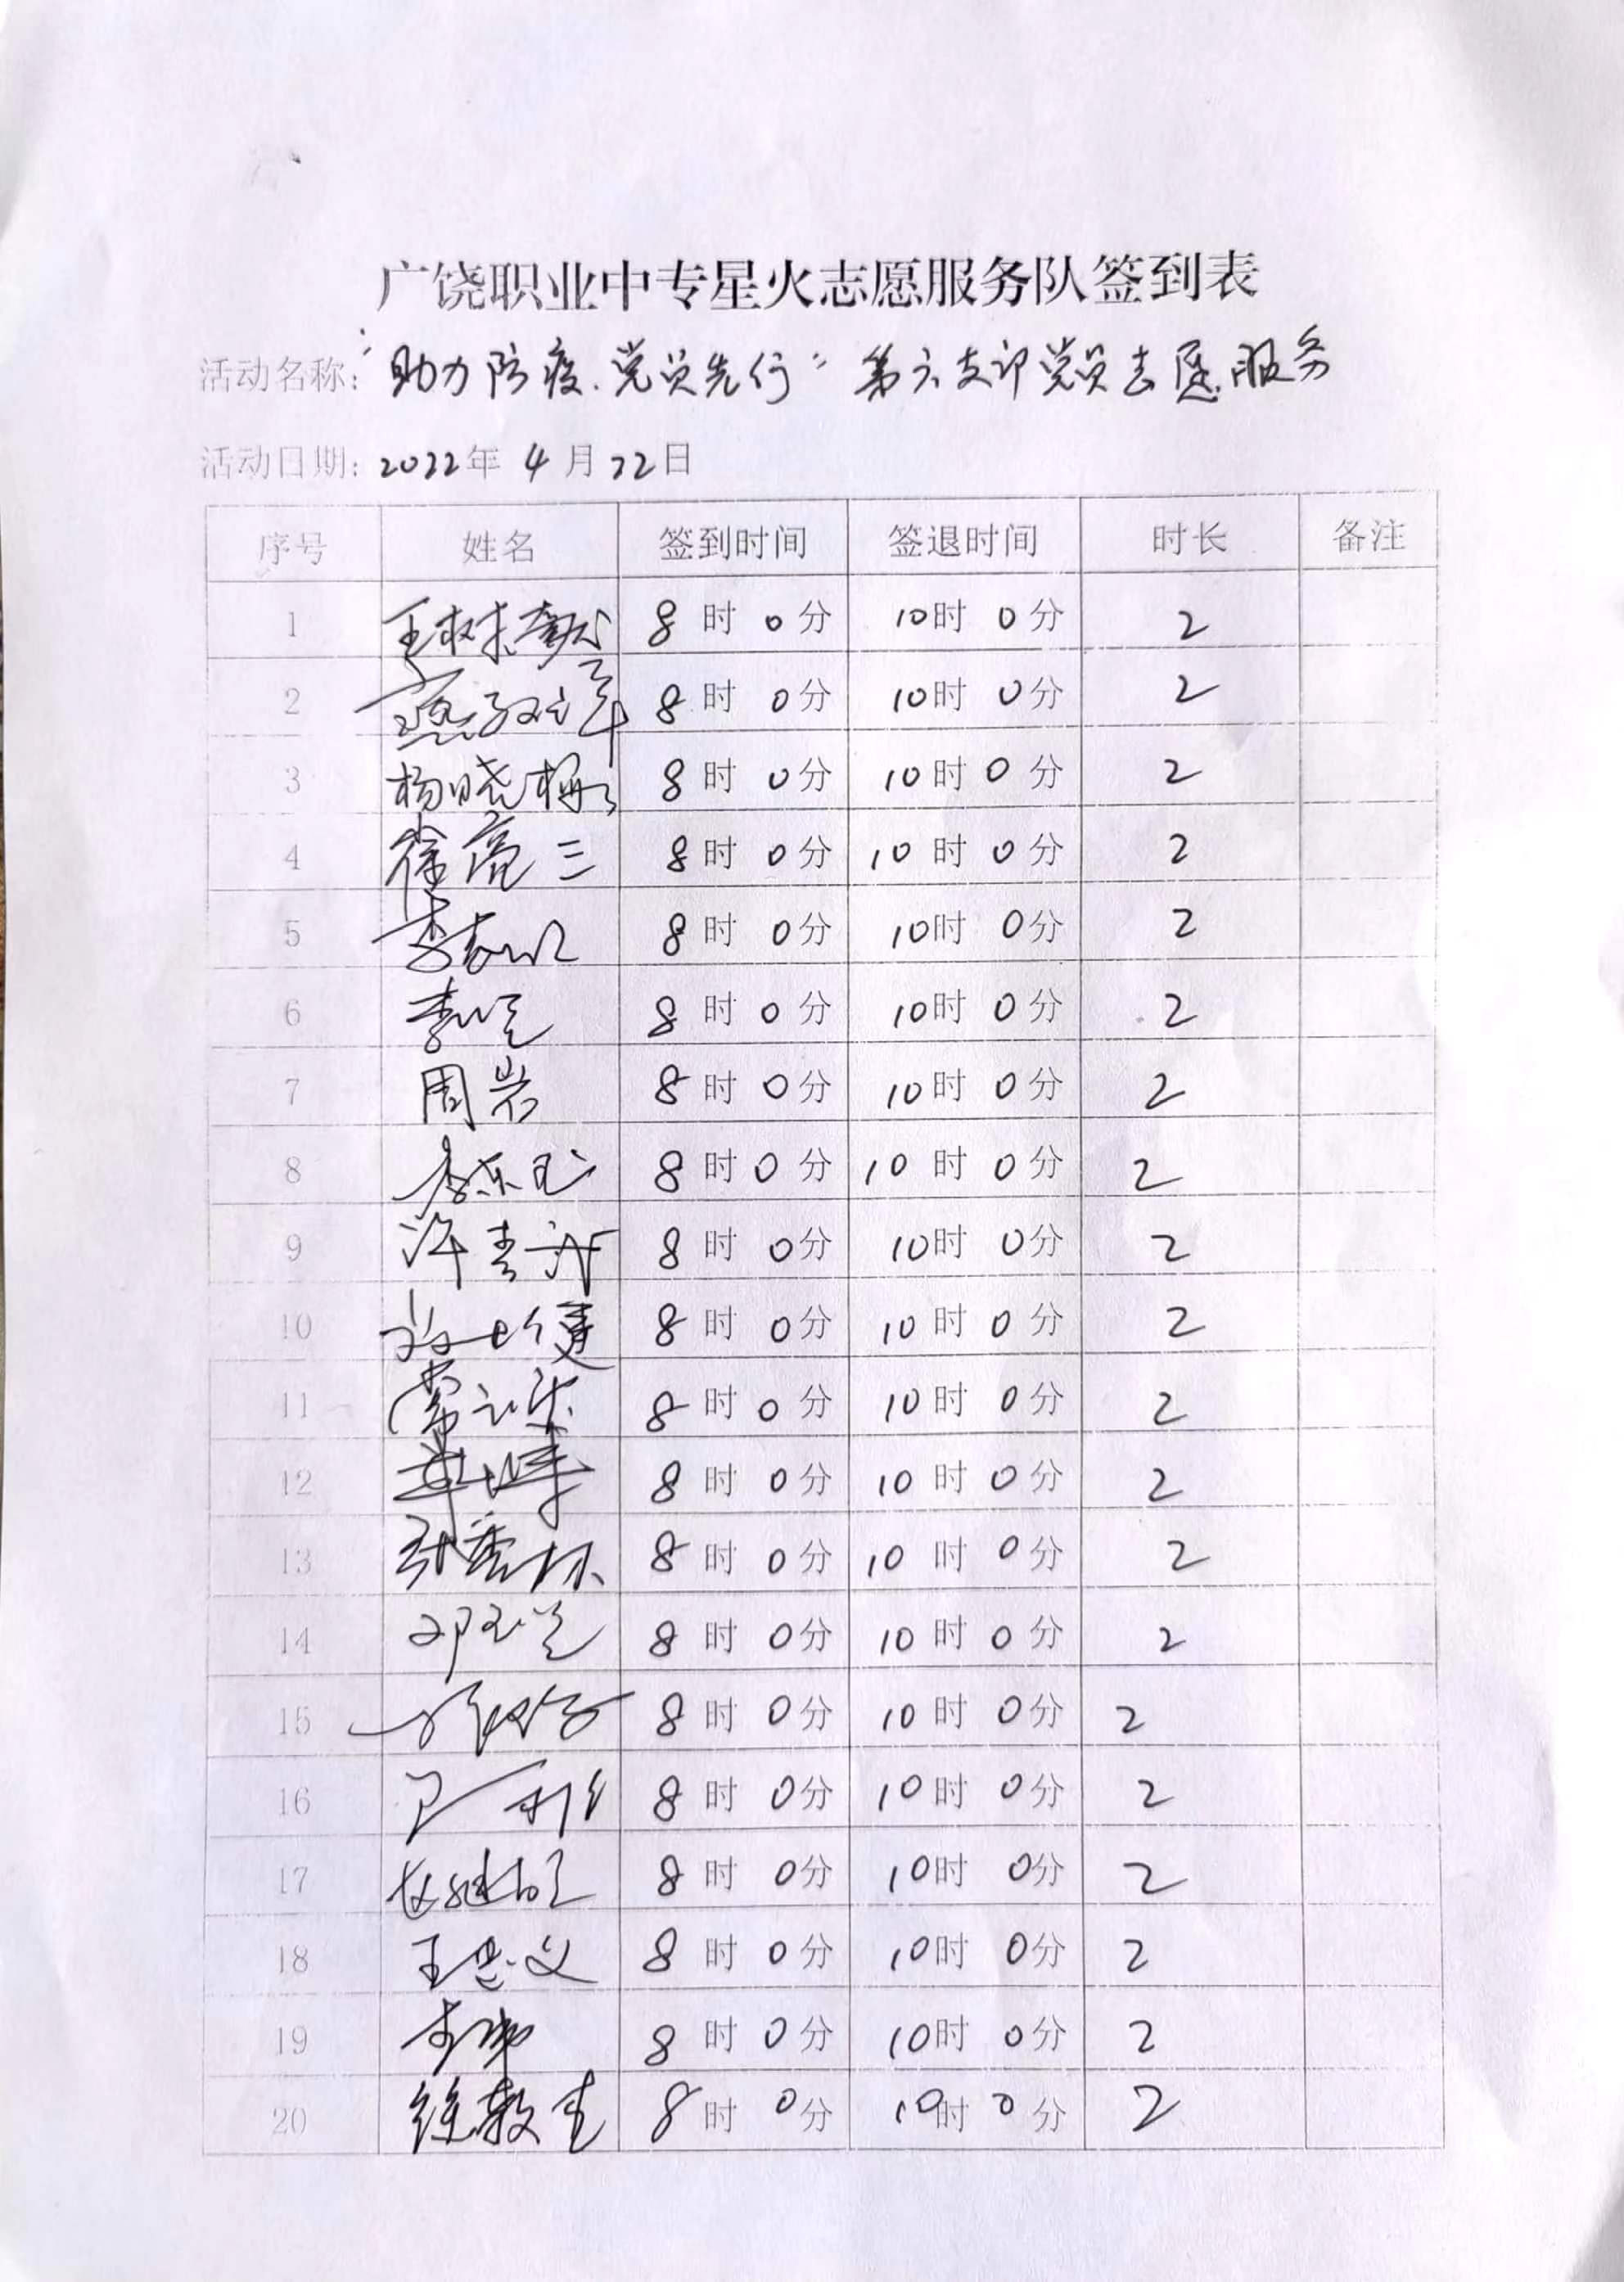 广饶职业中专星火志愿服务队签到表
活动名称：“助力防疫.党员先行”第六支部党员志愿服务
活动日期：2022年 4 月 22日
序号 姓名 签到时间 签退时间 时长 备注
1 8 时 0 分 10时 0 分 2
2 8 时 0分 10时 0分 2
3 杨晓梅 8 时 0分 10时 0 分 2
4 徐亮三 8 时 0 分 10 时 0 分 2
5 8 时 0分 10时 0分 2
6 8 时 0 分 10时 0 分 2
7 周岩 8 时 0 分 10时 0 分 2
8 8 时 0 分 10 时 0 分 2
9 8 时 0分 10时 0分 2
10 8 时 0分 10 时 0 分 2
11 8 时 0 分 10时 0 分 2
12 8 时 0 分 10 时 0 分 2
13 8 时 0 分 10 时 0分 2
14 8 时 0分 10 时 0 分 2
15 8 时 0分 10 时 0分 2
16 8 时 0分 10时 0分 2
17 8 时 0分 10时 0分 2
18 8 时 0分 10时 0分 2
19 8 时 0分 10时 0分 2
20 8 时 0分 10时 0 分 2